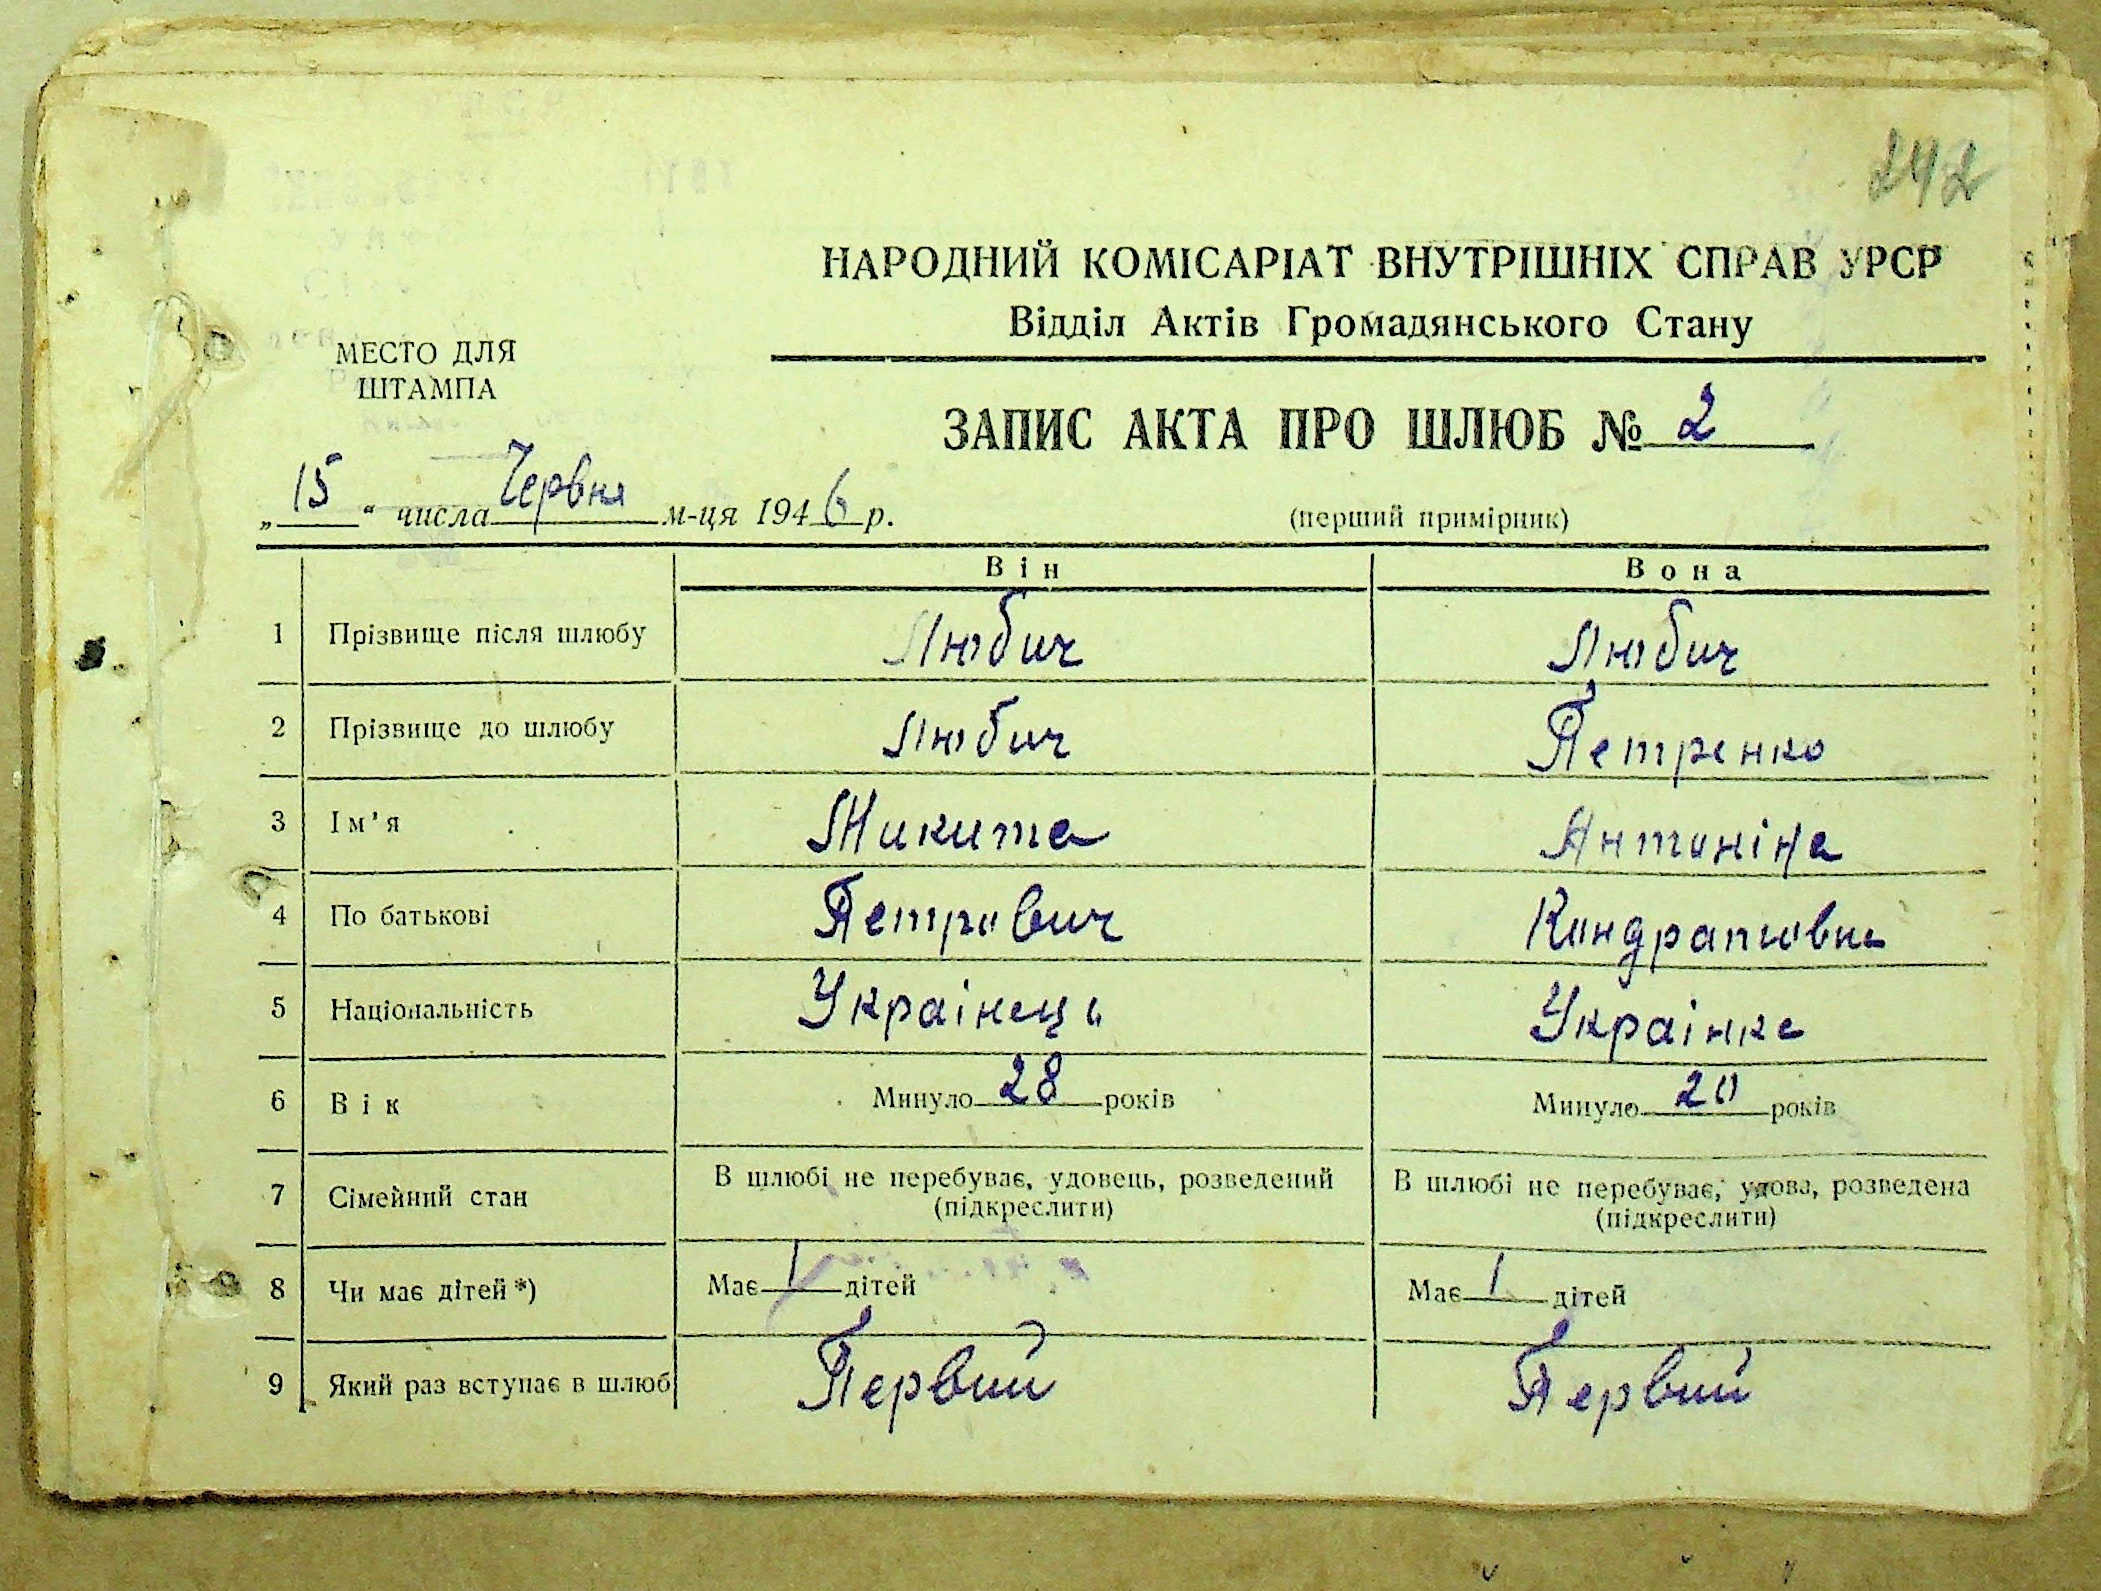 242
НАРОДНИЙ КОМІСАРІАТ ВНУТРІШНІХ СПРАВ УРСР
Відділ Актів Громадянського Стану
МЕСТО ДЛЯ
ШТАМПА
ЗАПИС АКТА ПРО ШЛЮБ № 2
„15“ числа Червня м-ця 1946 р.
(перший примірник)
Він Вона
1 Прізвище після шлюбу Любич Любич
2 Прізвище до шлюбу Любич Петренко
3 Ім'я Микита Антоніна
4 По батькові Петрович Кондратовна
5 Національність Українець Українка
6 Вік Минуло 28 років Минуло 20 років
7 Сімейний стан В шлюбі не перебуває, удовець, розведений (підкреслити) В шлюбі не перебуває, удова, розведена (підкреслити)
8 Чи має дітей *) Має 1 дітей Має 1 дітей
9 Який раз вступає в шлюб Первий Первий